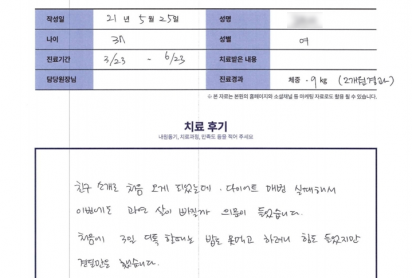 작성일 21년 5월 25일 성명
나이 31 성별 여
진료기간 3/23 - 6/23 치료받은 내용
담당원장님 진료경과 체중 -9kg (2개월경과)
※ 본 자료는 본원의 홈페이지와 소셜채널 등 마케팅 자료로도 활용 될 수 있습니다.
치료 후기
내원동기, 치료과정, 만족도 등을 적어 주세요!
친구 소개로 처음 오게 되었는데. 다이어트 매번 실패해서
이번에도 과연 살이 빠질까 의문이 들었습니다.
처음에 3일 디톡 할때는 밥도 못먹고 하려니 힘도 들었지만
결단만을 했습니다.